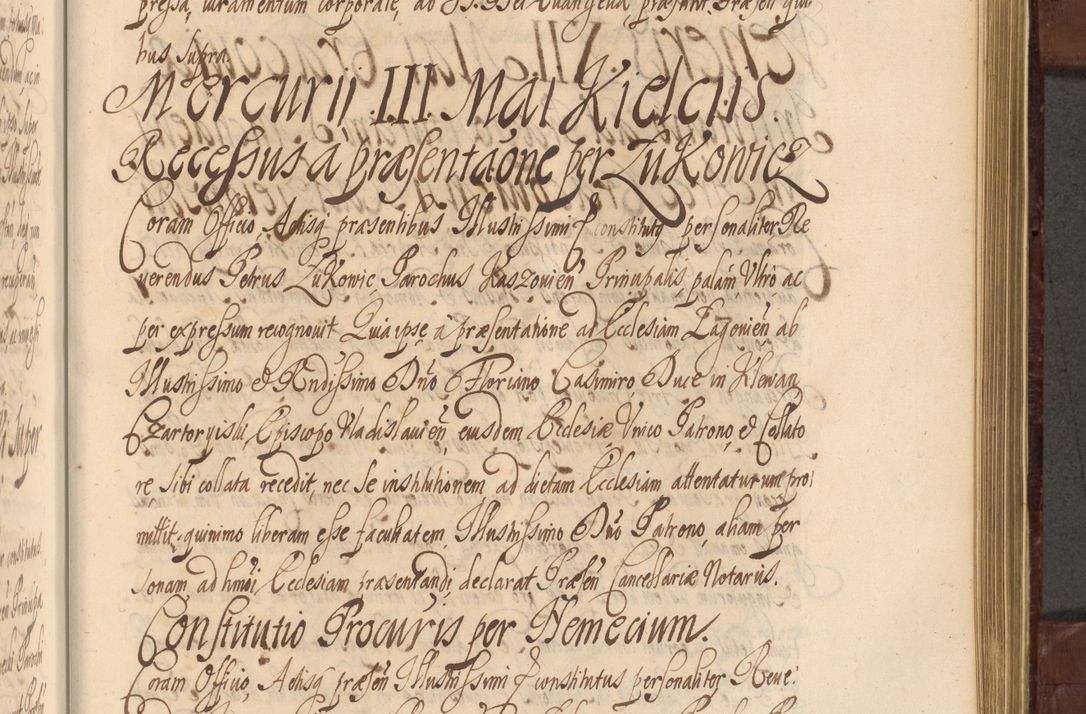 pressa, iuramentum corporale, ad SS. Dei Euangelia, præstitit. Præsen̄ qui
bus supra.
Mercurij III Mai Kielcijs.
Recessus à præsentaōne per Zukowicz
Coram Officio Actisq præsentibus Illustrissimi & constitutus personaliter Re
verendus Petrus Zukowic Parochus Kaszovien̄ Principalis palam Vltro ac
per expressum recognouit Quia ipse à præsentatione ad Ecclesiam Łagovien̄ ab
Illustrissimo & Rndissimo Dn̄o Floriano Casimiro Duce in Klewan
Czartoryiski Episcopo Vladislauien̄, eiusdem Ecclesiæ Vnico Patrono, & Collato
re sibi collata recedit, nec se institutionem, ad dictam Ecclesiam attentaturum pro
mittit, quinimo liberam esse facultatem, Illustrissimo Dn̄o Patrono, aliam per
sonam, ad hmōi Ecclesiam, præsentandi, declarat Præsen̄ Cancellariæ Notarijs.
Constitutio Procuris per Nemecium.
Coram Officio, Actisq præsen̄ Illustrissimi & constitutus personaliter Reve